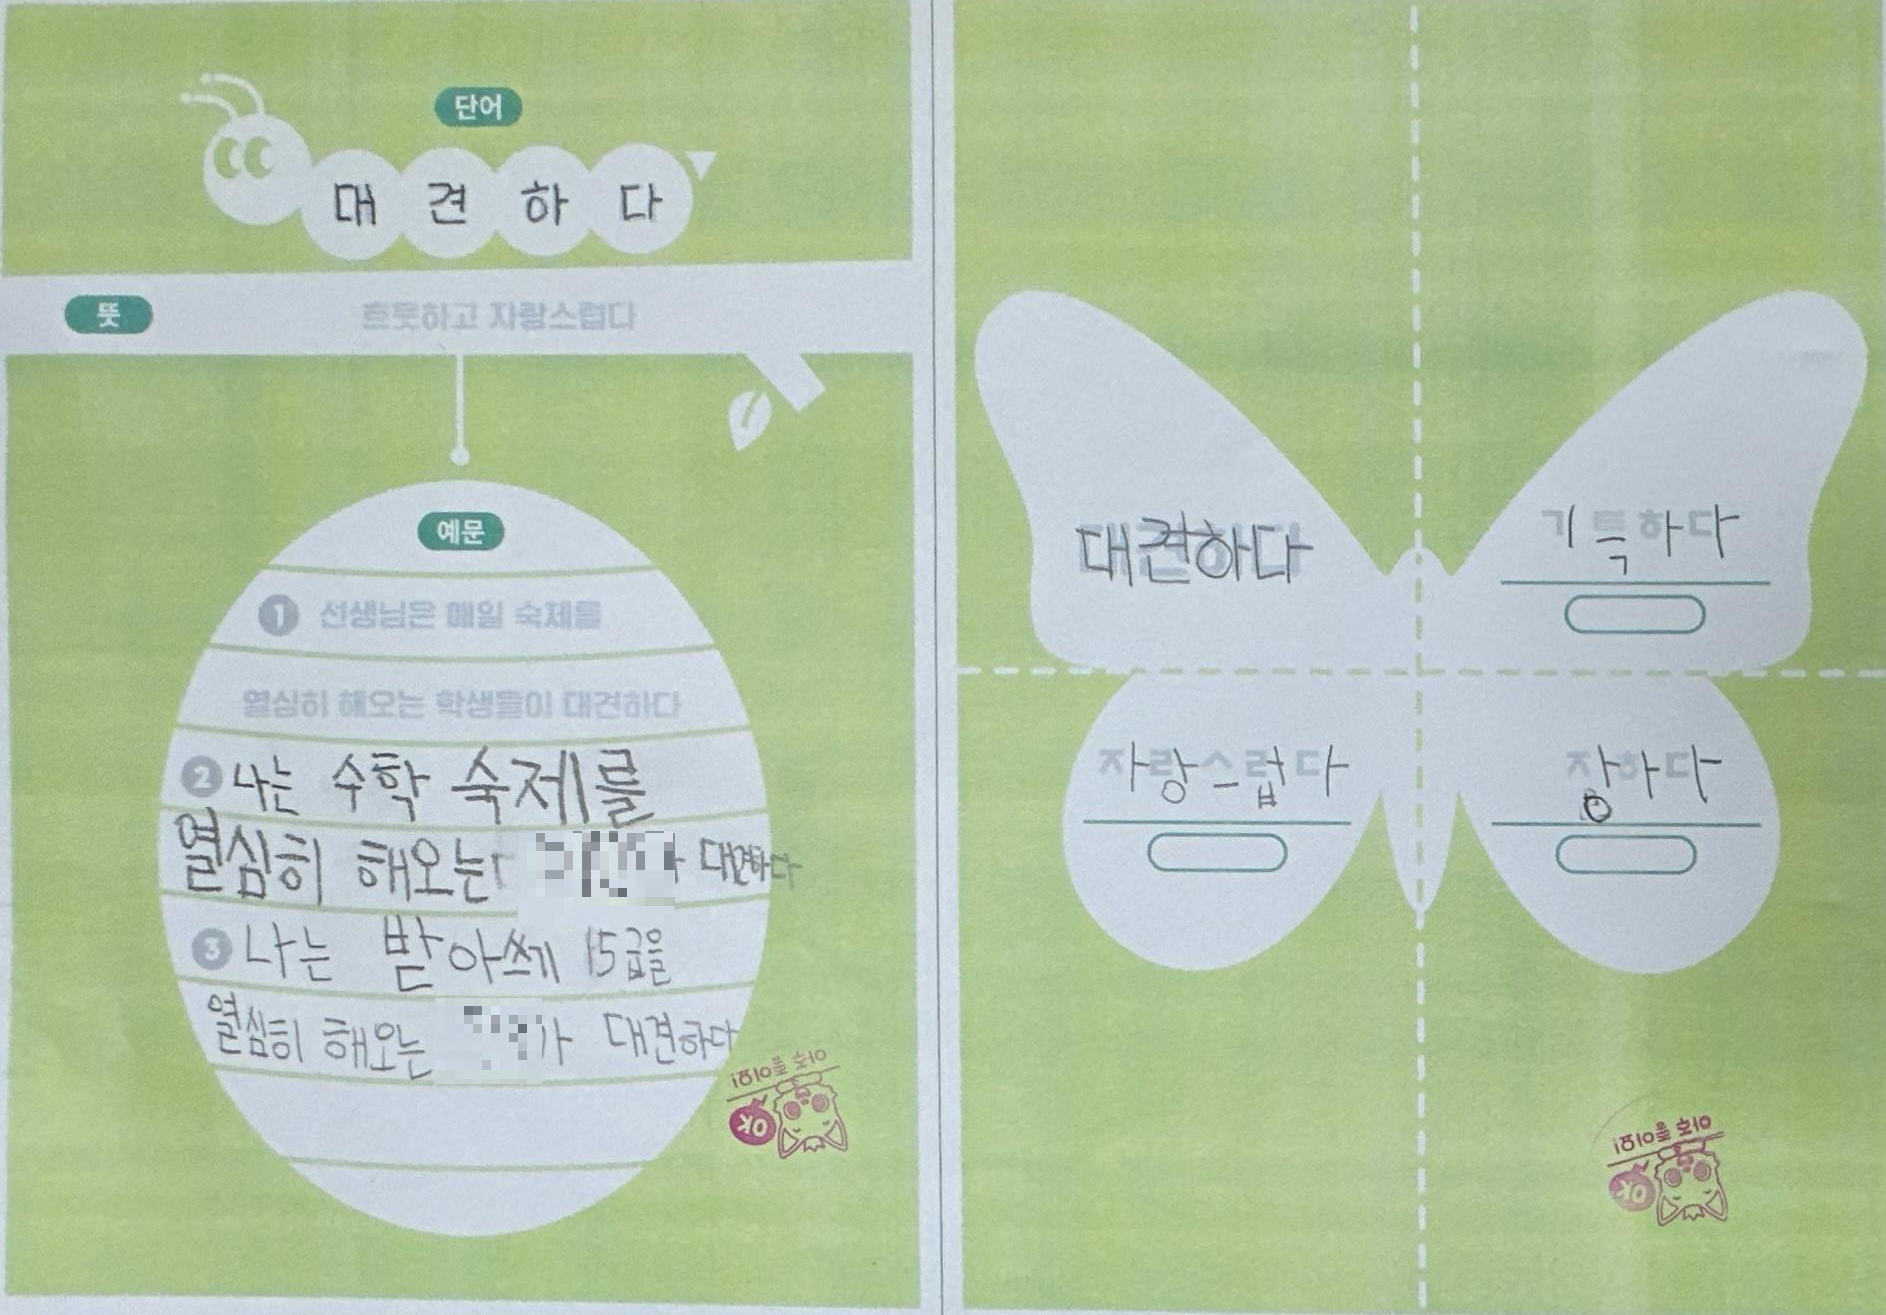 단어
대견하다
뜻
흐뭇하고 자랑스럽다
예문
1 선생님은 매일 숙제를
열심히 해오는 학생들이 대견하다
2 나는 수학 숙제를
열심히 해오는 대견하다
3 나는 받아쓰게 15급을
열심히 해오는 가 대견하다
아주 좋아요!
OK
대견하다
기특하다
자랑스럽다
장하다
아주 좋아요!
OK